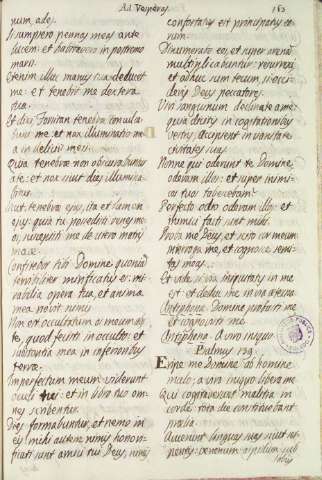 Ad Vesperas
163
num, adest
Si sumpsero pennas meas ante
lucem: et habitavero in postremo
maris.
Etenim illuc manus tua deducet
me: et tenebit me dextera
tua.
Et dixi Forsitan tenebræ conculca
bunt me: et nox illuminatio me
a in deliciis meis.
Quia tenebræ non obscurabuntur
a te: et nox sicut dies illumina
bitur
sicut tenebræ eius, ita et lumen
eius: quia tu possedisti renes me
os, suscepisti me de utero matris
meæ.
Confitebor tibi Domine quoniam
terribiliter magnificatus es: mi
rabilia opera tua, et anima
mea novit nimis
Non est occultatum os meum a
te, quod fecisti in occulto: et
substantia mea in inferioribus
terræ.
Imperfectum meum viderunt
oculi tui: et in libro tuo om
nes scribentur
Dies formabuntur, et nemo in
eis mihi autem nimis honori
ficati sunt amici tui Deus, nimis
confortatus est principatus eo
rum.
Dinumerabo eos, et super arenam
multiplicabuntur: exurrexi,
et adhuc sum tecum, si occi
deris Deus peccatores.
Viri sanguinum declinate a me:
quia dicitis in cogitatione
accipient in vanitate
civitates suas.
Nonne qui oderunt te Domine,
oderam illos: et super inimi
cos tuos tabescebam?
Perfecto odio oderam illos: et
inimici facti sunt mihi.
Proba me Deus, et scito cor meum:
interroga me, et cognosce semi
tas meas.
Et vide si via iniquitatis in me
est: et deduc me in via æterna.
Antiphona. Domine probasti me
et cognovisti me
Antiphona. A viro iniquo
Psalmus 139.
Eripe me Domine ab homine
malo: a viro iniquo libera me
Qui cogitaverunt malitias in
corde: tota die constituebant
prælia.
Acuerunt linguas suas sicut ser
pentis: venenum aspidum sub
labiis